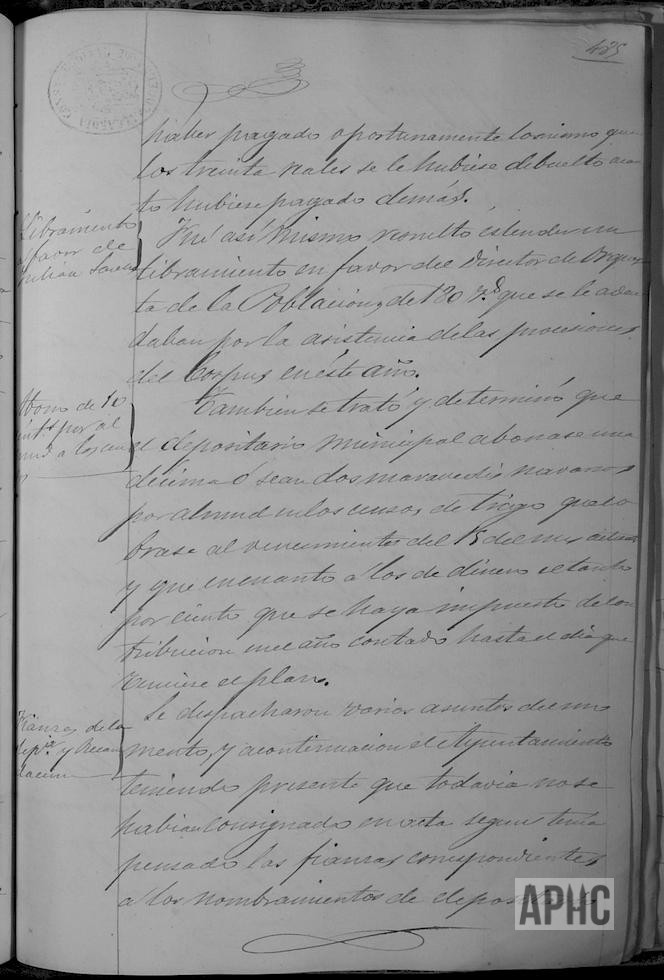 425
haber pagado oportunamente lo mismo que
los treinta reales se le hubiese debuelto cuan
to hubiese pagado demás.
Libramiento
a favor de
Julian
Fué así mismo resuelto estender un
libramiento en favor del Director de Orques
ta de la Poblacion, de 180 r.s que se le adeu
daban por la asistencia de las procesiones
del Corpus en éste año.
Abono de
por al
mud a los cen
Tambien se trató y determinó que
el depositario municipal abonase una
décima ó sean dos maravedis navarros
por almud en los censos de trigo que co
brase al vencimiento del 15 del mes
y que en cuanto á los de dinero el tanto
por ciento que se haya impuesto de con
tribucion en el año contado hasta el dia que
venciese el plazo.
Fianzas de la
y Recau
dacion
Se despacharon varios asuntos de mo
mento, y acontinuacion el Ayuntamiento
teniendo presente que todavia no se
habian consignado en acta segun tenia
pensado las fianzas correspondientes
á los nombramientos de depositario
APHC